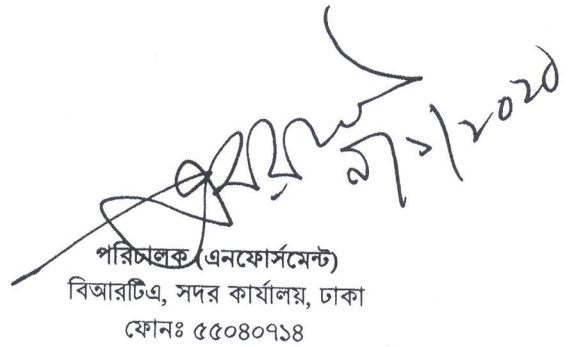 পরিচালক (এনফোর্সমেন্ট)
বিআরটিএ, সদর কার্যালয়, ঢাকা
ফোনঃ ৫৫০৪০৭১৪